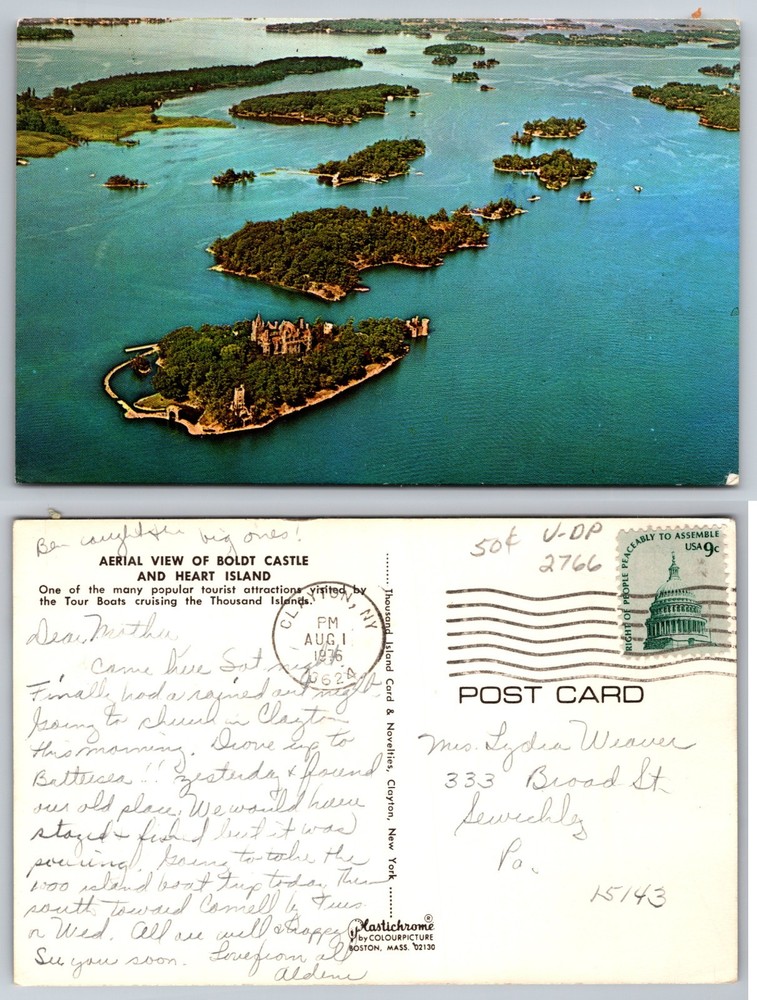 Ben caught big ones!
AERIAL VIEW OF BOLDT CASTLE
AND HEART ISLAND
One of the many popular tourist attractions visited by
the Tour Boats cruising the Thousand Islands.
Dear Mother,
Came here Sat night
Finally had a rained out night
Going to church in Clayton
this morning. Drove up to
yesterday & found
our old place. We would have
stayed & fished but it was
pouring. Going to take the
1000 island boat trip today. Then
south toward Cornell by Tues
or Wed. All are well & happy
See you soon. Love from all
Aldene
CLAYTON, NY
PM
AUG 1
1976
13624
Thousand Island Card & Novelties, Clayton, New York
Plastichrome®
by COLOURPICTURE
BOSTON, MASS. 02130
50¢ U-DP
2766
RIGHT OF PEOPLE PEACEABLY TO ASSEMBLE
USA 9c
POST CARD
Mrs. Lydia Weaver
333 Broad St.
Sewickley
Pa.
15143